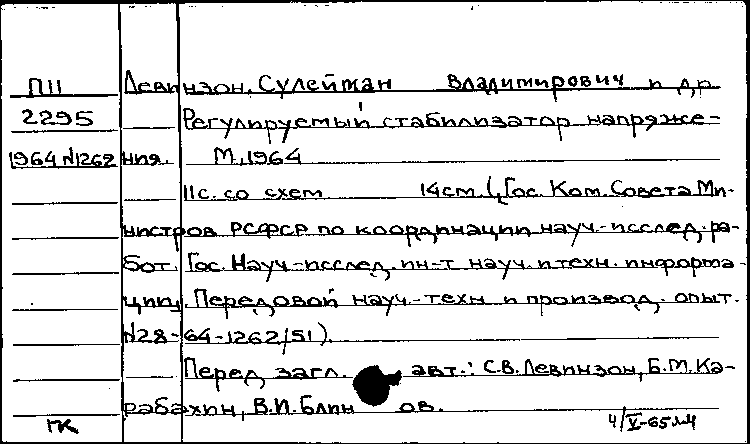 П11 Левинзон, Сулейман Владимирович и др
2295 Регулируемый стабилизатор напряже-
1964 №1262 ния. М, 1964
11с. со схем 14см. (Гос. Ком. Совета Ми-
нистров РСФСР по координации науч.-исслед. ра-
бот. Гос. Науч.-исслед. ин-т науч. и техн. информа-
ции. Передовой науч.-техн. и производ. опыт.
№28-64-1262/51).
Перед загл. авт.: С.В. Левинзон, Б.М. Ка-
рабахин, В.И. Блинов.
ГК 4/V-65